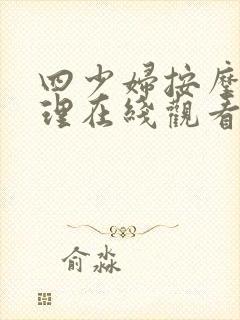 四少婦按摩
理在綫觀看
俞淼